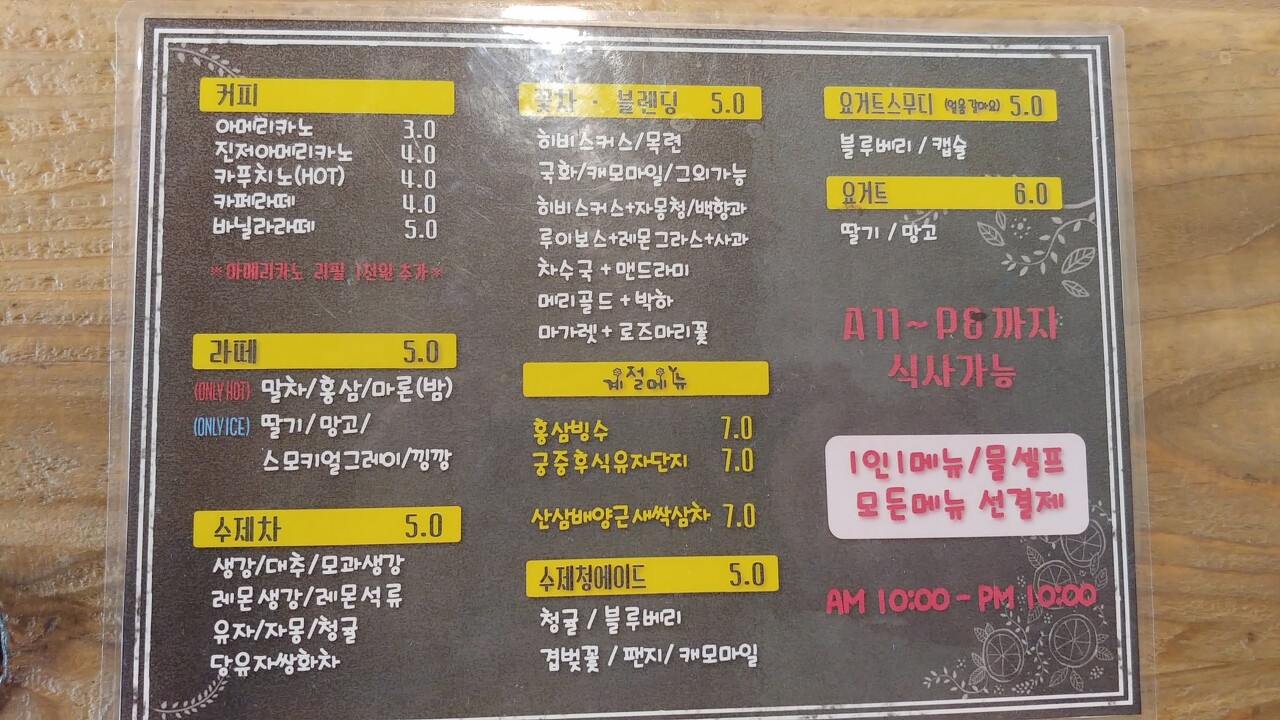 커피
아메리카노 3.0
진저아메리카노 4.0
카푸치노(HOT) 4.0
카페라떼 4.0
바닐라라떼 5.0
※아메리카노 리필 1천원 추가※
라떼 5.0
(ONLY HOT) 말차/홍삼/마론(밤)
(ONLY ICE) 딸기/망고/
스모키얼그레이/낑깡
수제차 5.0
생강/대추/모과생강
레몬생강/레몬석류
유자/자몽/청귤
당유자쌍화차
꽃차 · 블렌딩 5.0
히비스커스/목련
국화/캐모마일/그외가능
히비스커스+자몽청/백향과
루이보스+레몬그라스+사과
차수국+맨드라미
메리골드+박하
마가렛+로즈마리꽃
계절메뉴
홍삼빙수 7.0
궁중후식유자단지 7.0
산삼배양근새싹삼차 7.0
수제청에이드 5.0
청귤 / 블루베리
겹벚꽃 / 팬지/ 캐모마일
요거트스무디 5.0
블루베리 / 캡슬
요거트 6.0
딸기 / 망고
A 11~P8까지
식사가능
1인1메뉴/물셀프
모든메뉴 선결제
AM 10:00 - PM 10:00